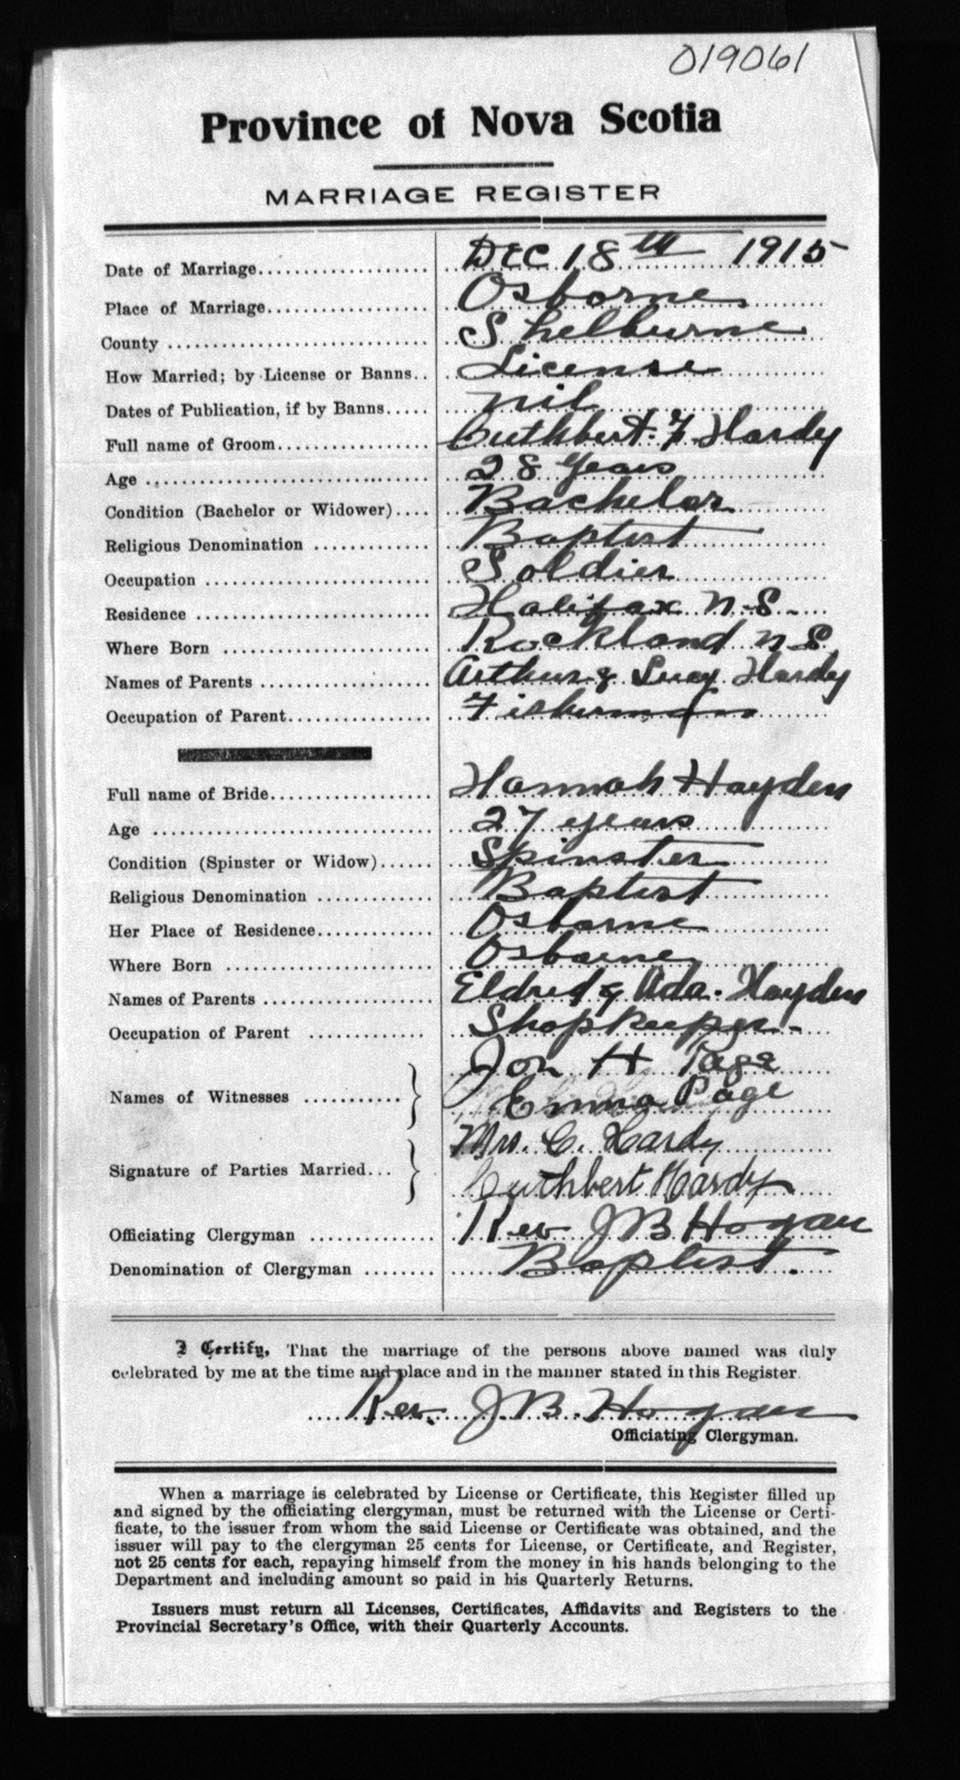 019061
Province of Nova Scotia
MARRIAGE REGISTER
Date of Marriage.................... DEC 18th 1915
Place of Marriage................... Osborne
County ............................. Shelburne
How Married; by License or Banns.. License
Dates of Publication, if by Banns..... nil
Full name of Groom.................. Cuthbert. F. Hardy
Age ................................ 28 Years
Condition (Bachelor or Widower).... Bachelor
Religious Denomination ............. Baptist
Occupation ......................... Soldier
Residence .......................... Halifax N.S.
Where Born ......................... Rockland N.S.
Names of Parents ................... Arthur & Lucy Hardy
Occupation of Parent................ Fisherman
Full name of Bride.................. Hannah Hayden
Age ................................ 27 years
Condition (Spinster or Widow)...... Spinster
Religious Denomination ............. Baptist
Her Place of Residence.............. Osborne
Where Born ......................... Osborne
Names of Parents ................... Eldred & Ada. Hayden
Occupation of Parent ............... Shopkeeper.
Jon H Page
Names of Witnesses ........... } Emma Page
Mrs. C. Hardy
Signature of Parties Married... } Cuthbert Hardy
Officiating Clergyman .............. Rev J B Hogan
Denomination of Clergyman ........ Baptist.
I Certify, That the marriage of the persons above named was duly
celebrated by me at the time and place and in the manner stated in this Register.
Rev. J B. Hogan
Officiating Clergyman.
When a marriage is celebrated by License or Certificate, this Register filled up
and signed by the officiating clergyman, must be returned with the License or Certi-
ficate, to the issuer from whom the said License or Certificate was obtained, and the
issuer will pay to the clergyman 25 cents for License, or Certificate, and Register,
not 25 cents for each, repaying himself from the money in his hands belonging to the
Department and including amount so paid in his Quarterly Returns.
Issuers must return all Licenses, Certificates, Affidavits and Registers to the
Provincial Secretary's Office, with their Quarterly Accounts.